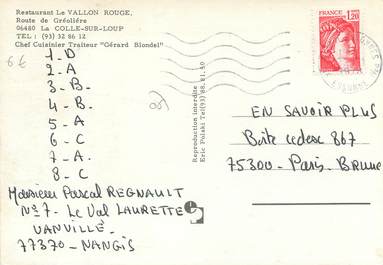 Restaurant Le VALLON ROUGE,
Route de Gréolière
06480 La COLLE-SUR-LOUP
TEL : (93) 32 86 12
Chef Cuisinier Traiteur "Gérard Blondel"
6€
1 - D
2 - A
3 - B
4 - B
5 - A
6 - C
7 - A
8 - C
Monsieur Pascal REGNAULT
N°7 - Le Val LAURETTE
VANVILLÉ
77370 - NANGIS
Reproduction interdite
Eric Polski Tel (93) 88.81.50
FRANCE 1,20
EN SAVOIR PLUS
Boite cedesc 867
75300 - Paris - Brune